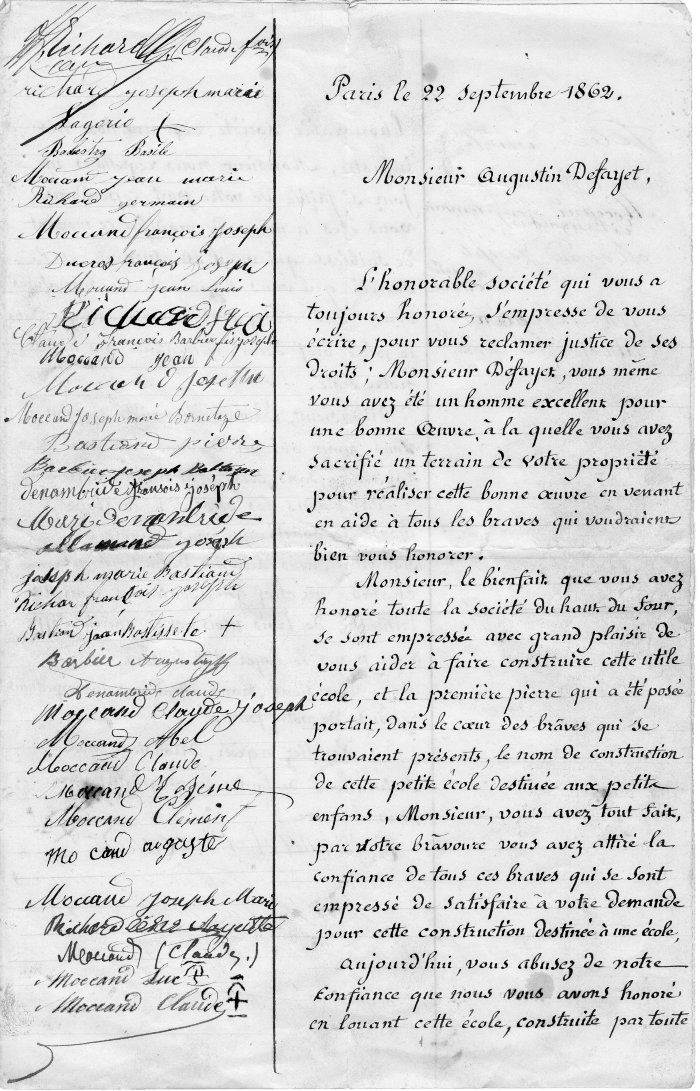 Richard (Claude fois)
richard joseph marie
Lagerie
Balistra Basile
Moccant jean marie
Richard germain
Moccand françois Joseph
Ducros françois joseph
Mocand jean Louis
Richard
François Barbier fis joseph
Moccand jean
Moccand Josephe
Moccand Joseph marie Bornetaze
Bastiand pierre
Barbier joseph
denambride fransois joséph
Mari Denambride
allemand joseph
joseph marie Bastiand
Richar françois joseph
Bastiand jean Batissete +
Barbier Augustin
Denambride claude
Moccand Claude joseph
Moccand Abel
Moccand Claude
Moccand Zosime
Moccand Clément
mo cand auguste
Moccand Joseph Marie
Richard
Moccand (Claude.)
Moccand Luc
Moccand Claude
Paris le 22 septembre 1862.
Monsieur Augustin Defayet,
L'honorable société qui vous a
toujours honoré, s'empresse de vous
écrire, pour vous reclamer justice de ses
droits; Monsieur Défayet, vous même
vous avez été un homme excellent pour
une bonne Œuvre, à la quelle vous avez
sacrifié un terrain de votre propriété
pour réaliser cette bonne œuvre en venant
en aide à tous les braves qui voudraient
bien vous honorer.
Monsieur, le bienfait que vous avez
honoré toute la société du haut du four,
se sont empressée avec grand plaisir de
vous aider à faire construire cette utile
école, et la première pierre qui a été posée
portait, dans le cœur des brâves qui se
trouvaient présents, le nom de construction
de cette petite école destinée aux petits
enfans, Monsieur, vous avez tout fait,
par votre brâvoure vous avez attiré la
confiance de tous ces braves qui se sont
empressé de satisfaire à votre demande
pour cette construction destinée à une école,
aujourd'hui, vous abusez de notre
confiance que nous vous avons honoré
en louant cette école, construite par toute